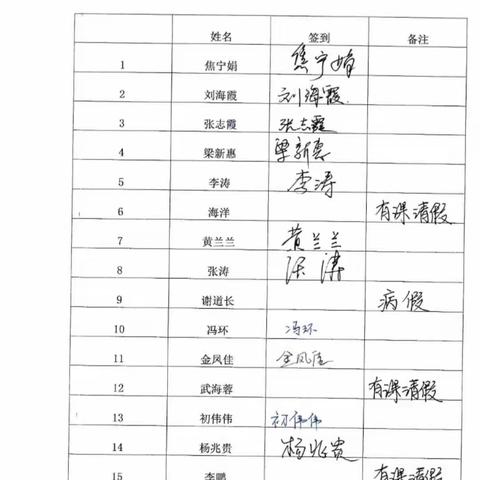 姓名 签到 备注
1 焦宁娟 焦宁娟
2 刘海霞 刘海霞
3 张志霞 张志霞
4 梁新惠 梁新惠
5 李涛 李涛
6 海洋 有课请假
7 黄兰兰 黄兰兰
8 张涛 张涛
9 谢道长 病假
10 冯环 冯环
11 金凤佳 金凤佳
12 武海蓉 有课请假
13 初伟伟 初伟伟
14 杨兆贵 杨兆贵
15 李鹏 有课请假